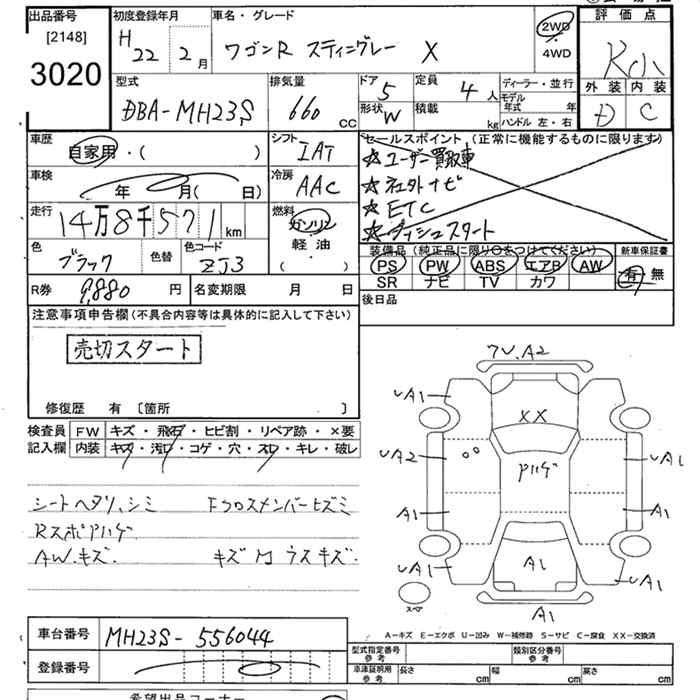 出品番号 初度登録年月 車名・グレード 評価点
[2148] H 22 2月 ワゴンR スティングレー X 2WD
3020 4WD R小
型式 排気量 ドア 定員 ディーラー・並行 外装 内装
DBA-MH23S 660 CC 5 4人 モデル年式 年 D C
形状 W 積載 kg ハンドル 左・右
車歴 シフト セールスポイント(正常に機能するものに限ります)
自家用・( ) IAT ☆ユーザー買取車
車検 冷房 ☆社外ナビ
年 月( 日) AAC ☆ETC
走行 14万8千571km 燃料 ガソリン ☆プッシュスタート
軽油
色 色替 色コード ( ) 装備品(純正品に限り○をつけてください) 新車保証書
ブラック ZJ3 PS PW ABS エアB AW 有・無
SR ナビ TV カワ
R券 9,880円 名変期限 月 日 後日品
注意事項申告欄(不具合内容等は具体的に記入して下さい)
売切スタート
修復歴 有 〔箇所 〕
検査員 FW キズ・飛石・ヒビ割・リペア跡・×要
記入欄 内装 キズ・汚れ・コゲ・穴・スレ・キレ・破レ
シートヘタリ、シミ Fクロスメンバーヒズミ
Rスポハゲ
AW.キズ. キズ
ワレ.A2
A1 A1
XX
UA2 UA1
A1 A1
UA1 A1 UA1
スペア A1
A-キズ E-エクボ U-凹み W-補修跡 S-サビ C-腐食 XX-交換済
車台番号 MH23S-556044 型式指定番号 参考 類別区分番号 参考
登録番号 車体証明用 参考 長さ cm 幅 cm 高さ cm
希望出品コーナー